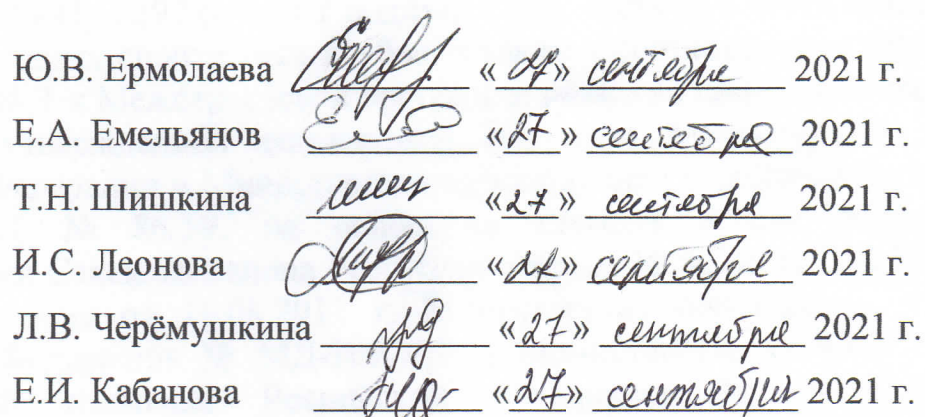 Ю.В. Ермолаева «27» сентября 2021 г.
Е.А. Емельянов «27» сентября 2021 г.
Т.Н. Шишкина «27» сентября 2021 г.
И.С. Леонова «27» сентября 2021 г.
Л.В. Черёмушкина «27» сентября 2021 г.
Е.И. Кабанова «27» сентября 2021 г.